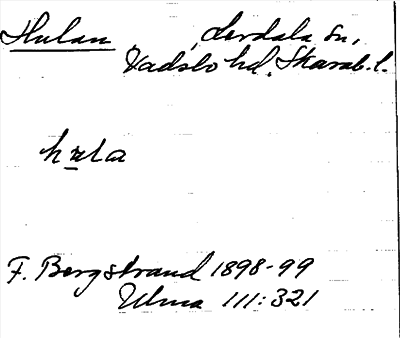 Hulan Lerdala sn,
Vadsbo hd, Skarab. l.
hula
F. Bergstrand 1898-99
Ulma 111:321